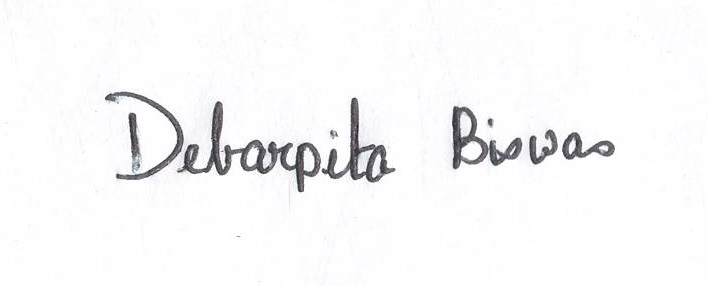 Debarpita Biswas